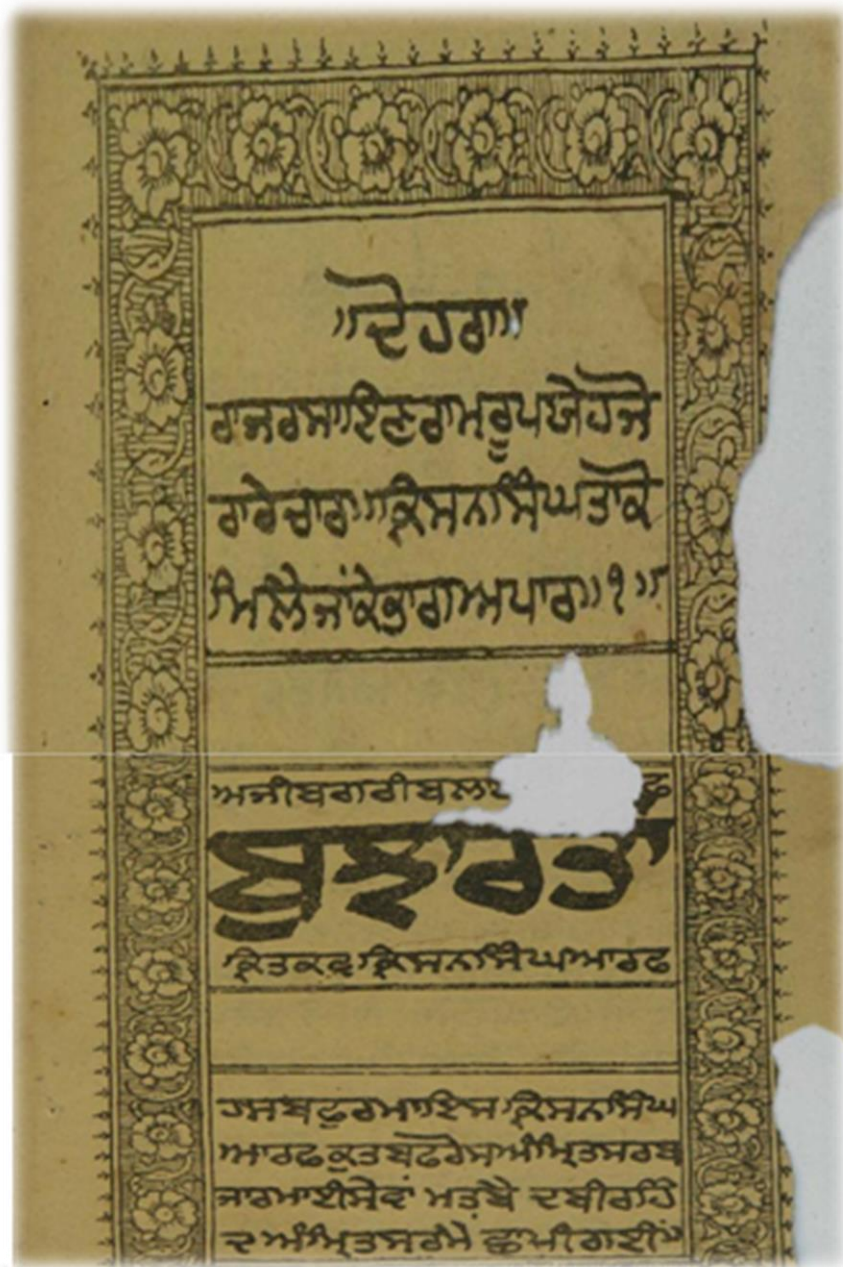 ॥ਦੋਹਰਾ॥
ਰਾਜਰਸਾਇਣਰਾਮਰੂਪਯੇਹੋਜੋ
ਰਾਰੇਚਾਰ॥ਕਿਸਨਸਿੰਘਤਾਂਕੋ
ਮਿਲੈਜਾਂਕੇਭਾਗਅਪਾਰ॥੧॥
ਅਜੀਬਗਰੀਬ
ਬੁਝਾਰਤਾਂ
ਕ੍ਰਿਤਕਵਿਕਿਸਨਸਿੰਘਆਰਫ
ਹਸਬਫੁਰਮਾਇਸਕਿਸਨਸਿੰਘ
ਆਰਫਕੁਤਬਫਰੋਸਅੰਮ੍ਰਿਤਸਰਬ
ਜਾਰਮਾਈਸੇਵਾਂ ਮਤਬੈ ਦਬੀਰਹਿੰ
ਦ ਅੰਮ੍ਰਿਤਸਰਮੈ ਛਾਪੀਗਈ॥